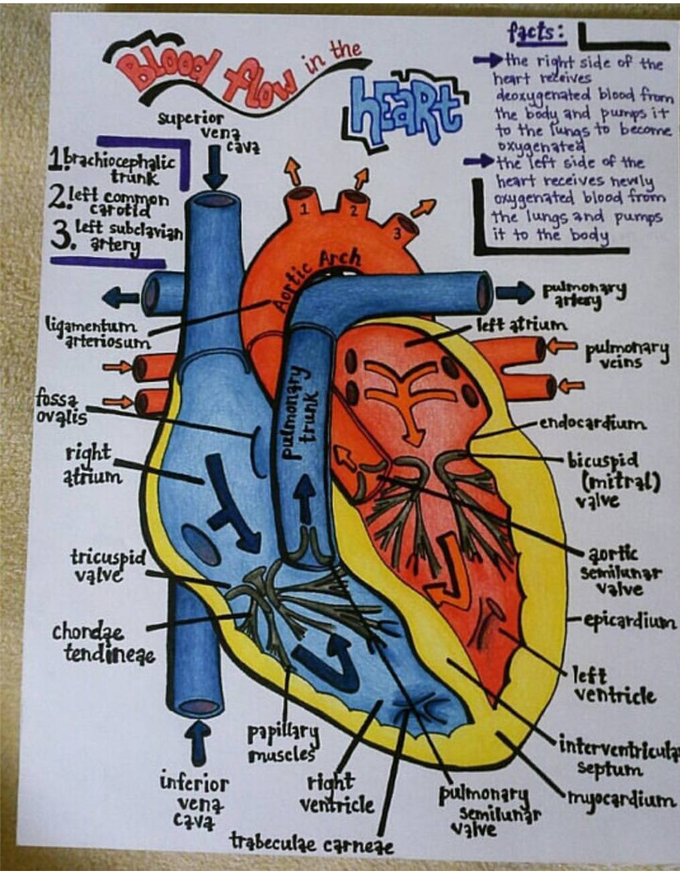 Blood flow in the
HEART
facts:
→ the right side of the
heart receives
deoxygenated blood from
the body and pumps it
to the lungs to become
oxygenated
→ the left side of the
heart receives newly
oxygenated blood from
the lungs and pumps
it to the body
superior
vena
cava
1. brachiocephalic
trunk
2. left common
carotid
3. left subclavian
artery
1
2
3
Aortic Arch
pulmonary
artery
ligamentum
arteriosum
left atrium
pulmonary
veins
fossa
ovalis
pulmonary
trunk
endocardium
right
atrium
bicuspid
(mitral)
valve
tricuspid
valve
aortic
semilunar
valve
chordae
tendineae
epicardium
left
ventricle
papillary
muscles
interventricula
septum
inferior
vena
cava
right
ventricle
pulmonary
semilunar
valve
myocardium
trabeculae carneae